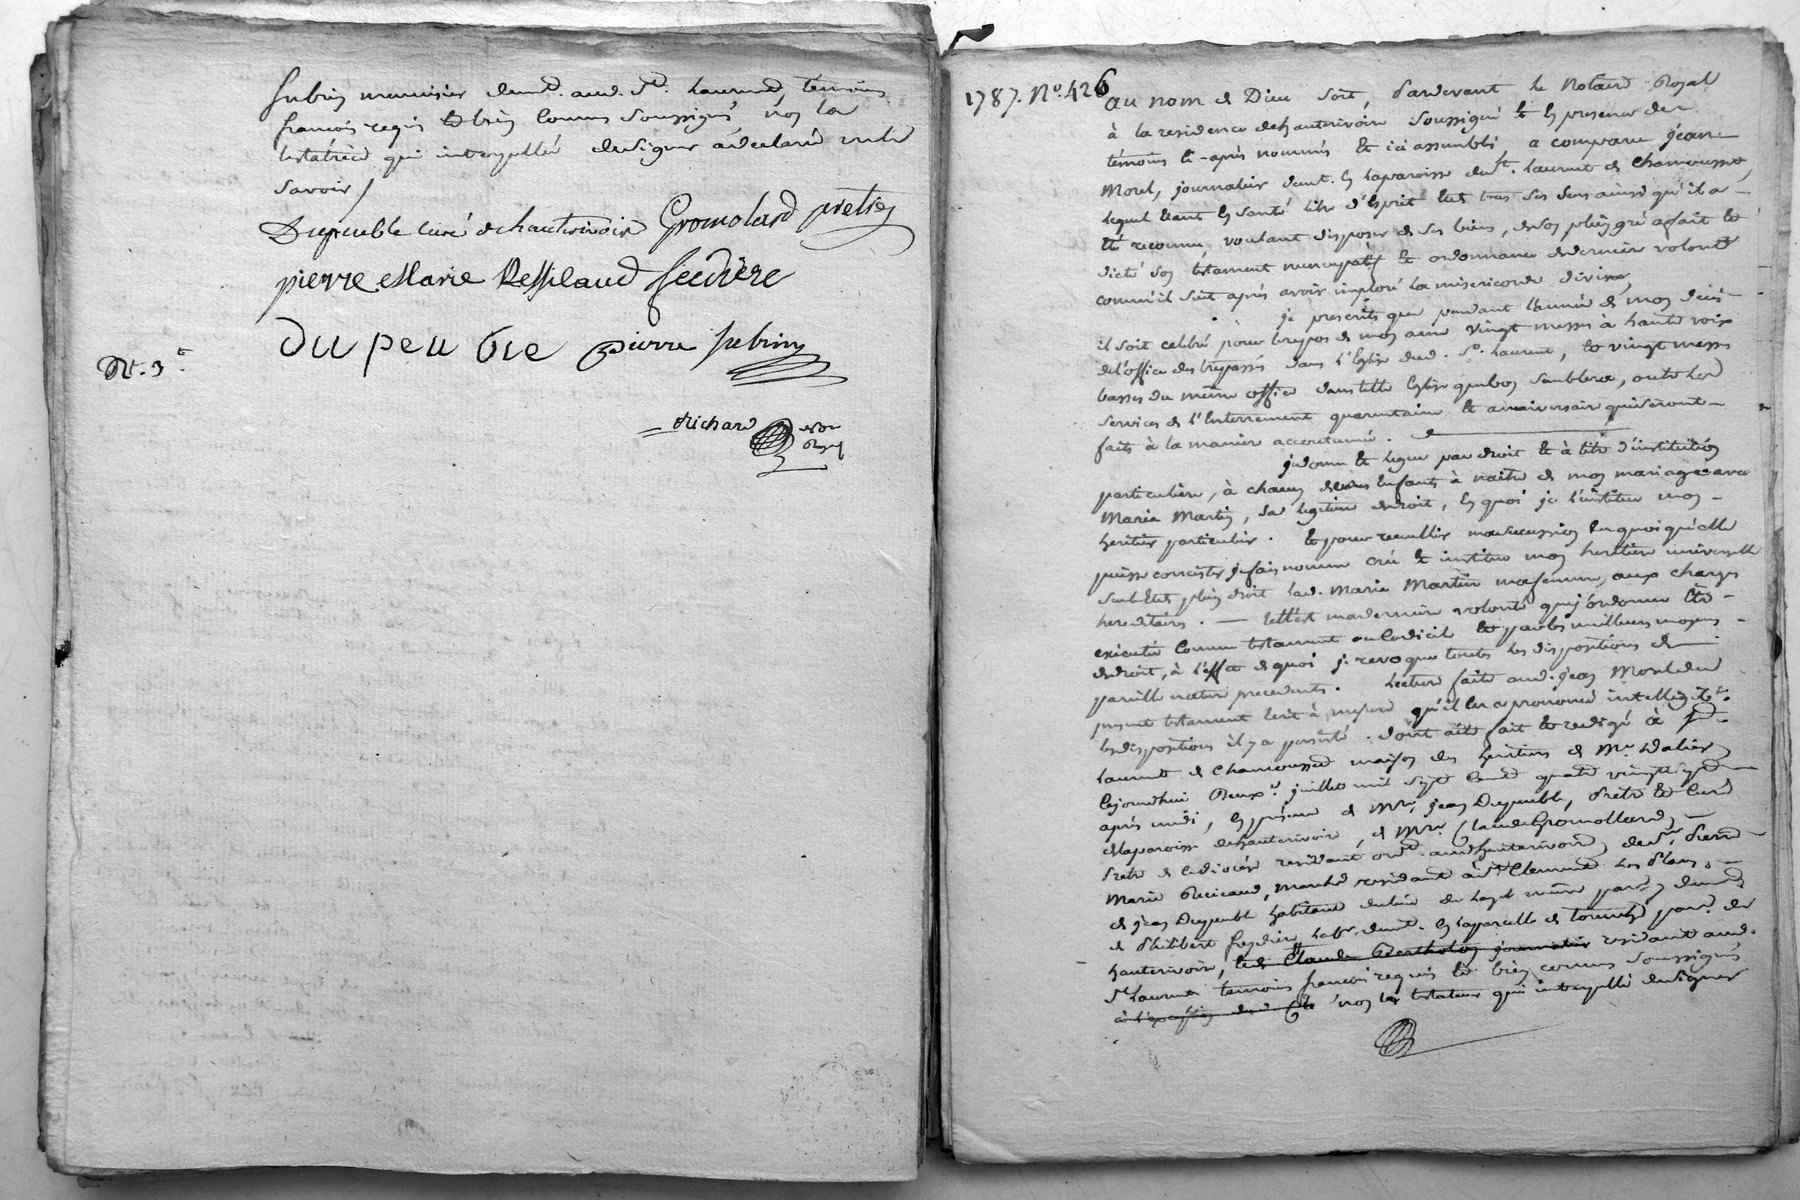 jubin menuisier demt. aud. St. Laurent, temoins
francois requis et bien connus soussignés non la
testatrice qui interpellée de signer a declaré ne le
savoir /
Dupeuble curé dehauterivoire Gromolard pretre
pierre Marie Ressicaud feediere
du peu ble pierre jubin
Nt. 3e.
Richard Nre
Royal
1787. No. 426
au nom de Dieu soit, Pardevant le Notaire Royal
à la residence dehauterivoire soussigné et en presence des
témoins ci-après nommés et ici assemblés, a comparu jean
Morel, journalier demt. en laparoisse de St. Laurent de Chamousset,
lequel étant en santé libre d'esprit et tous ses sens ainsi qu'il a
été reconnu, voulant disposer de ses biens, deson plein gré afait et
dicté son testament nuncupatif et ordonnance de derniere volonté
comme il suit après avoir imploré la misericorde divine,
je prescrits que pendant l'année de mon deces
il soit celebré pour lerepos de mon ame vingt messes à haute voix
de l'office des trepassés dans l'Eglise dud. St. Laurent, et vingt messes
basses du meme office dans telle Eglise quebon semblera, outre les
services de l'Enterrement quarantaine et anniversaire quiseront
faits à la maniere accoutumée.
jedonne et legue par droit et à titre d'institution
particuliere, à chacun de mes Enfants à naitre de mon mariage avec
Marie Martin, sa legitime de droit, en quoi je l'institue mon
heritier particulier. Et pour recueillir masuccession en quoi qu'elle
puisse consister jefais nomme crée et institue mon heritiere universelle
seule et de plein droit lad. Marie Martin mafemme, aux charges
hereditaires. — telle est maderniere volonté quej'ordonne être
executée comme testament ou Codicile et par les meilleurs moyens
dedroit, à l'effet de quoi je revoque toutes les dispositions de
pareille nature precedentes. Lecture faite aud. jean Morel du
present testament ecrit à mesure qu'il en a prononcé intelligt.
les dispositions il y a persisté. dont acte fait et redigé à St.
Laurent de Chamousset maison des heritiers de Mr. Dalier,
cejourdhui Deuxe. juillet mil sept cent quatre vingt sept
après midi, en présence de Mre. jean Dupeuble, Pretre et curé
delaparoisse dehauterivoire, de Mre. Claude Gromollard,
Pretre de cediocèse residant ord. aud hauterivoire, de Sr. Pierre
Marie Recicaud, marchd. residant à St. Clement les Places,
de jean Dupeuble habitant du lieu de meme parse.
de Philibert labr. demt. en laparcelle de parse. de
hauterivoire, et de Claude Bertholon journalier residant aud.
St Laurent temoins francois requis et bien connus soussignés
à l'exception dud. non le testateur qui interpellé designer